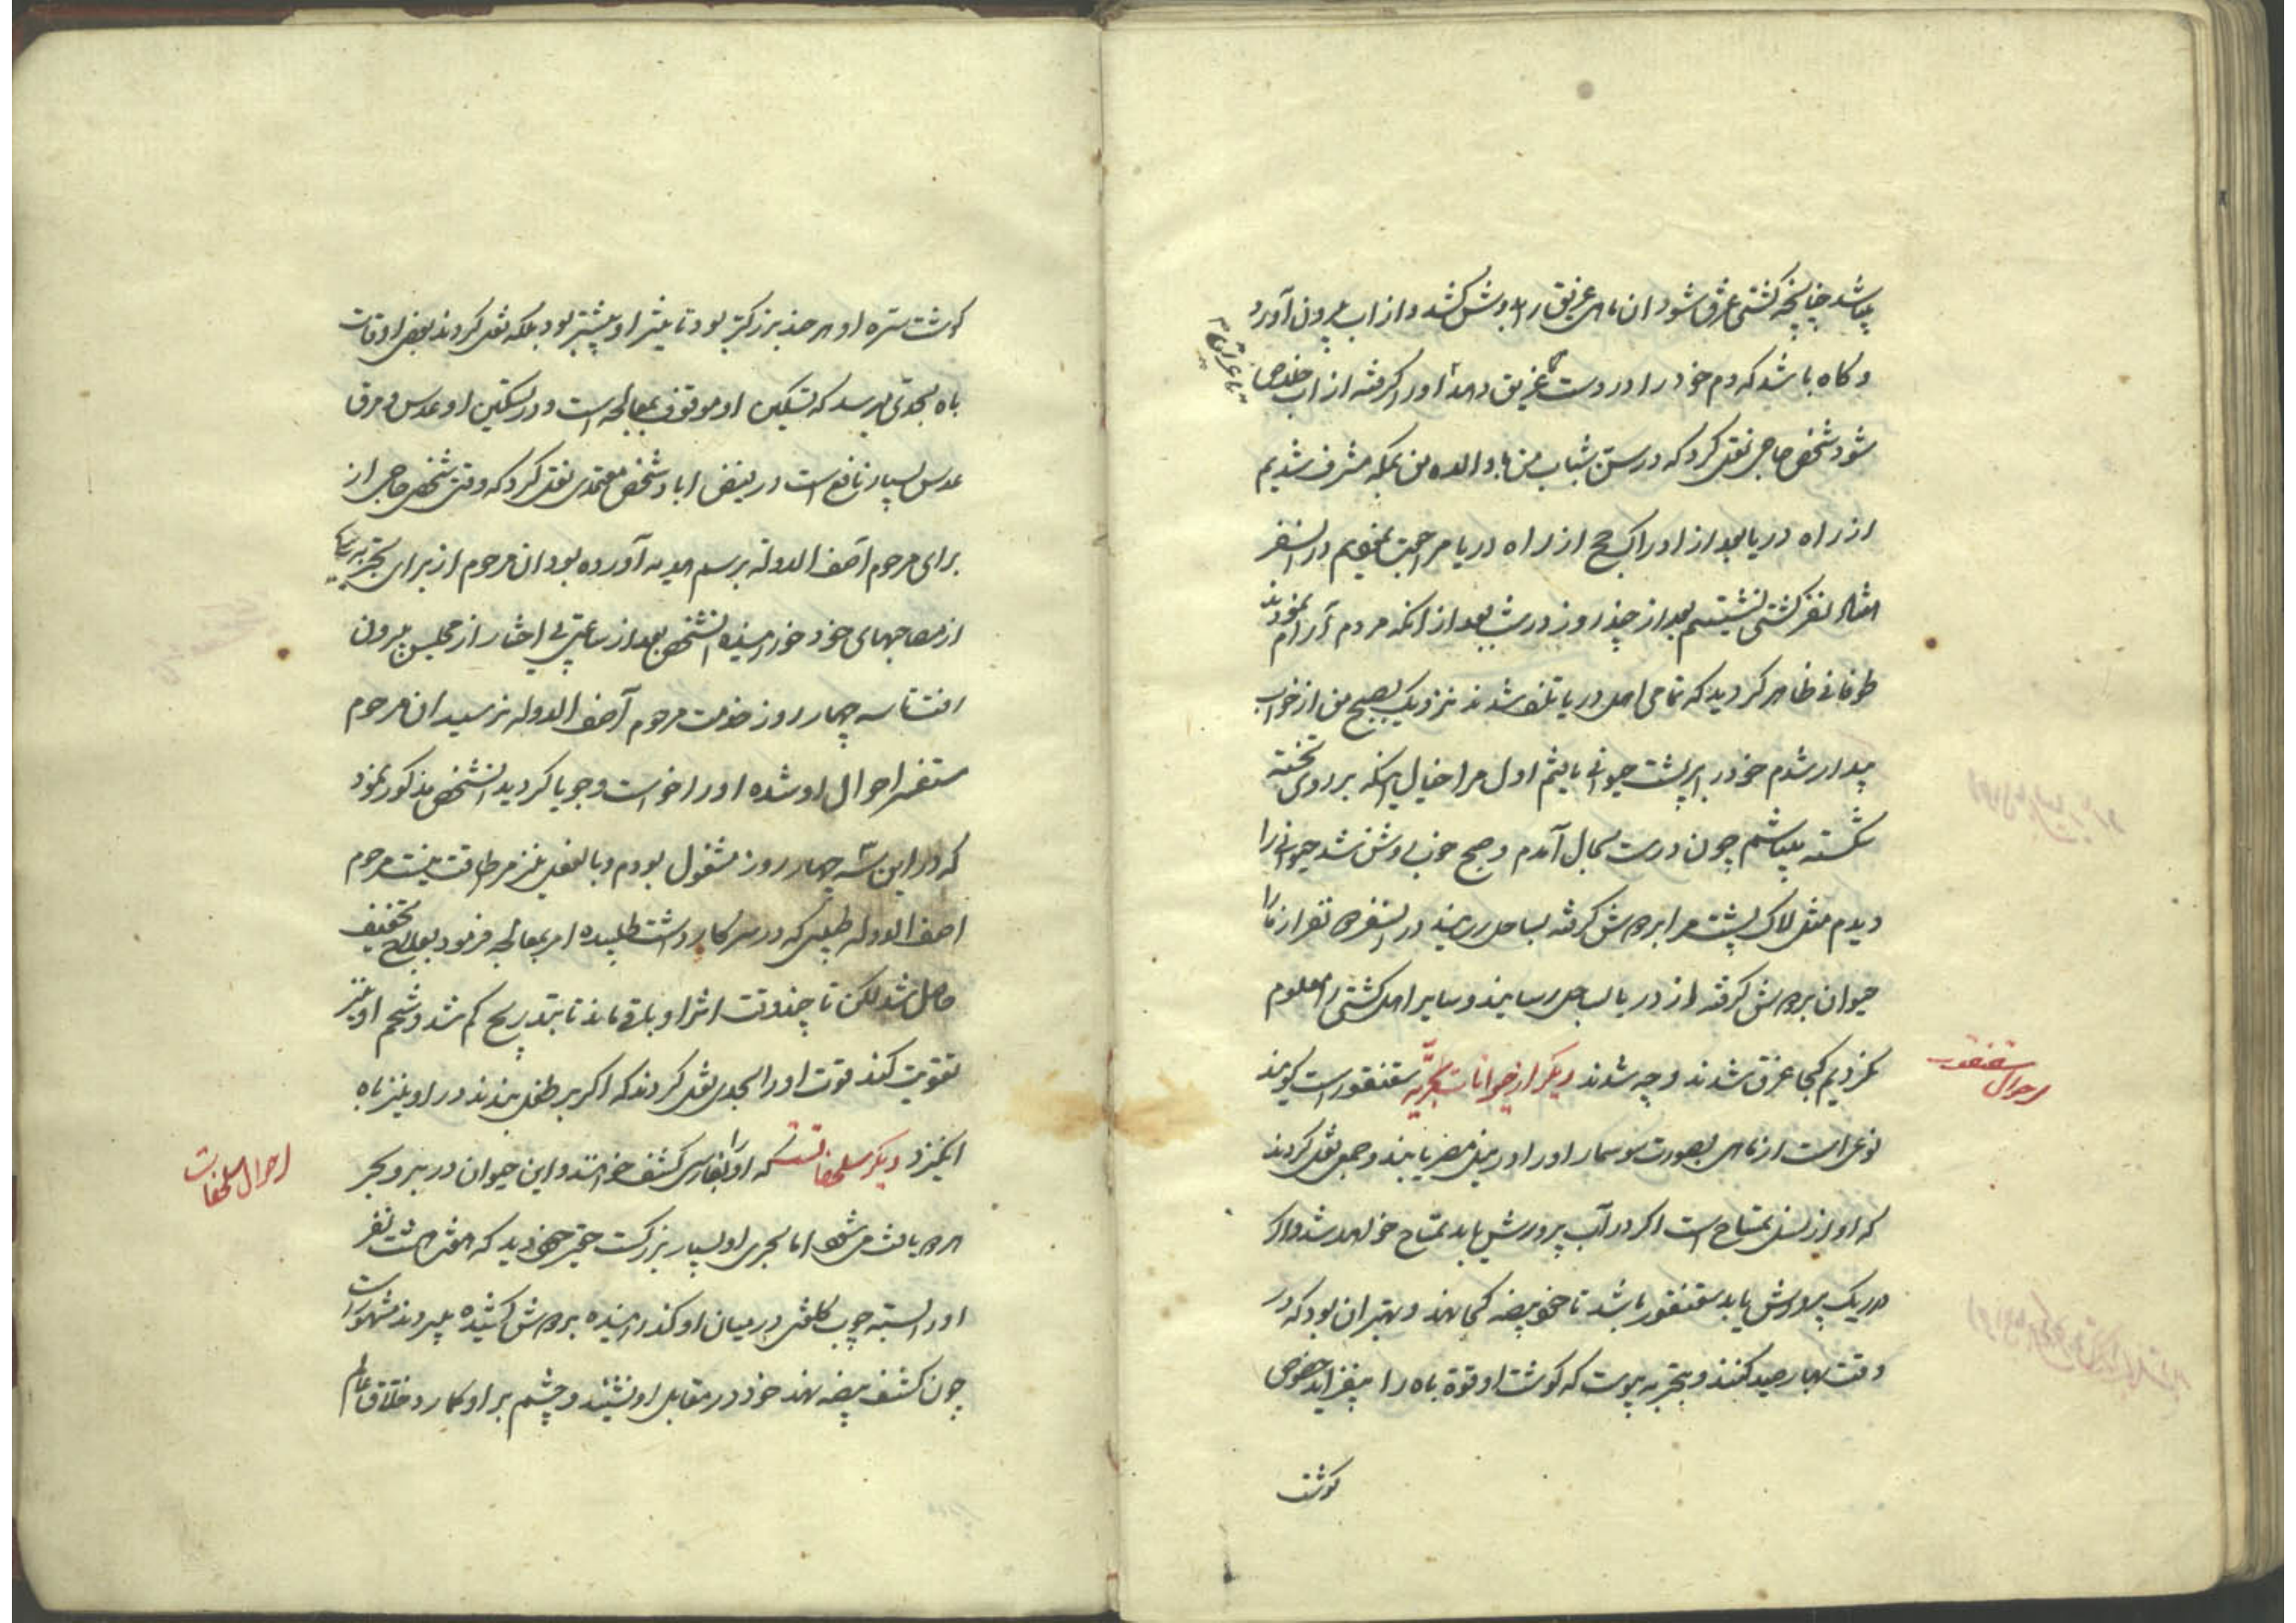 میباشد چنانچه کشتی غرق شود ان ماهی غریق را بدوش کشد و از اب بیرون آورد
و کاه باشد که دم خود را در دست غریق دهد تا او را کرفته از اب خلاص
تا غریق
شود شخص حاجی نقل کرد که در سن شباب من با والده من بمکه مشرف شدیم
از راه دریا بعد از ادراک حج از راه دریا مراجعت نمودیم در انسفر
نفر کشتی نشستیم بعد از چند روز در شب بعد از انکه مردم آرام نمودند
طوفانی ظاهر کردید که تمامی اهل دریا تلف شدند نزدیک بصبح من از خواب
بیدار شدم خود را بر پشت حیوانی یافتم اول مرا خیال انکه بر روی تخته
شکسته میباشم چون درست بحال آمدم و صبح خوب روشن شد حیوانی را
دیدم مثل لاک پشت مرا بدوش کرفته بساحل رسانید در انسفر ده نفر از ما را
حیوان بدوش کرفته از دریا بساحل رسانیدند و سایر اهل کشتی را معلوم
نکردیم کجا غرق شدند و چه شدند دیکر از حیوانات بحریه سقنقور است کویند
احوال سقنقور
نوعی است از ماهی بصورت سوسمار او را در نیل مصر یابند و جمعی نقل کردند
که او از نسل تمساح است اکر در آب پرورش یابد تمساح خواهد شد و اکر
در ریک پرورش یابد سقنقور باشد تا خود بیضه کجا نهد و بهتر ان بود که در
وقت بهار صید کنند و بتجربه پیوست که کوشت او قوة باه را میفزاید خصوص
کوشت
کوشت سره او هر چند بزرکتر بود تاثیر او بیشتر بود بلکه نقل کردند بعضی اوقات
باه بحدی میرسد که تسکین او موقوف بمعالجه است و در تسکین او عدس و مرق
عدس بسیار نافع است در فیض اباد شخص معتمدی نقل کرد که وقتی شخص حاجی از
برای مرحوم آصف الدوله برسم هدیه آورده بود ان مرحوم از برای تجربه بیکی
از مصاحبهای خود خورانیده انشخص بعد از ساعتی بی اختیار از مجلس بیرون
رفت تا سه چهار روز خدمت مرحوم آصف الدوله نرسید ان مرحوم
مستفسر احوال او شده او را خواست و جویا کردید انشخص مذکور نمود
که در این سه چهار روز مشغول بودم و بالفعل نیز مرا طاقت نیست مرحوم
اصف الدوله طبیبی که در سرکار داشت طلبیده امر بمعالجه فرمود بعلاج تخفیف
حاصل شد لکن تا چند وقت اثر او باقی ماند تا بتدریج کم شد و شحم او نیز
تقویت کند قوت او را بحدی نقل کردند که اکر بر طفل بندند در او نیز باه
انکیزد دیکر سلحفات است که او را بفارسی کشف خوانند و این حیوان در بر و بحر
احوال سلحفات
هر دو یافت می شود اما بحری او بسیار بزرکست حقیر خود دید که هفت هشت نفر
او را بسته چوب کلفتی در میان او کذرانیده بدوش کشیده میبردند مشهور است
چون کشف بیضه نهد خود در مقابل او نشیند و چشم بر او کمارد و خلاق عالم